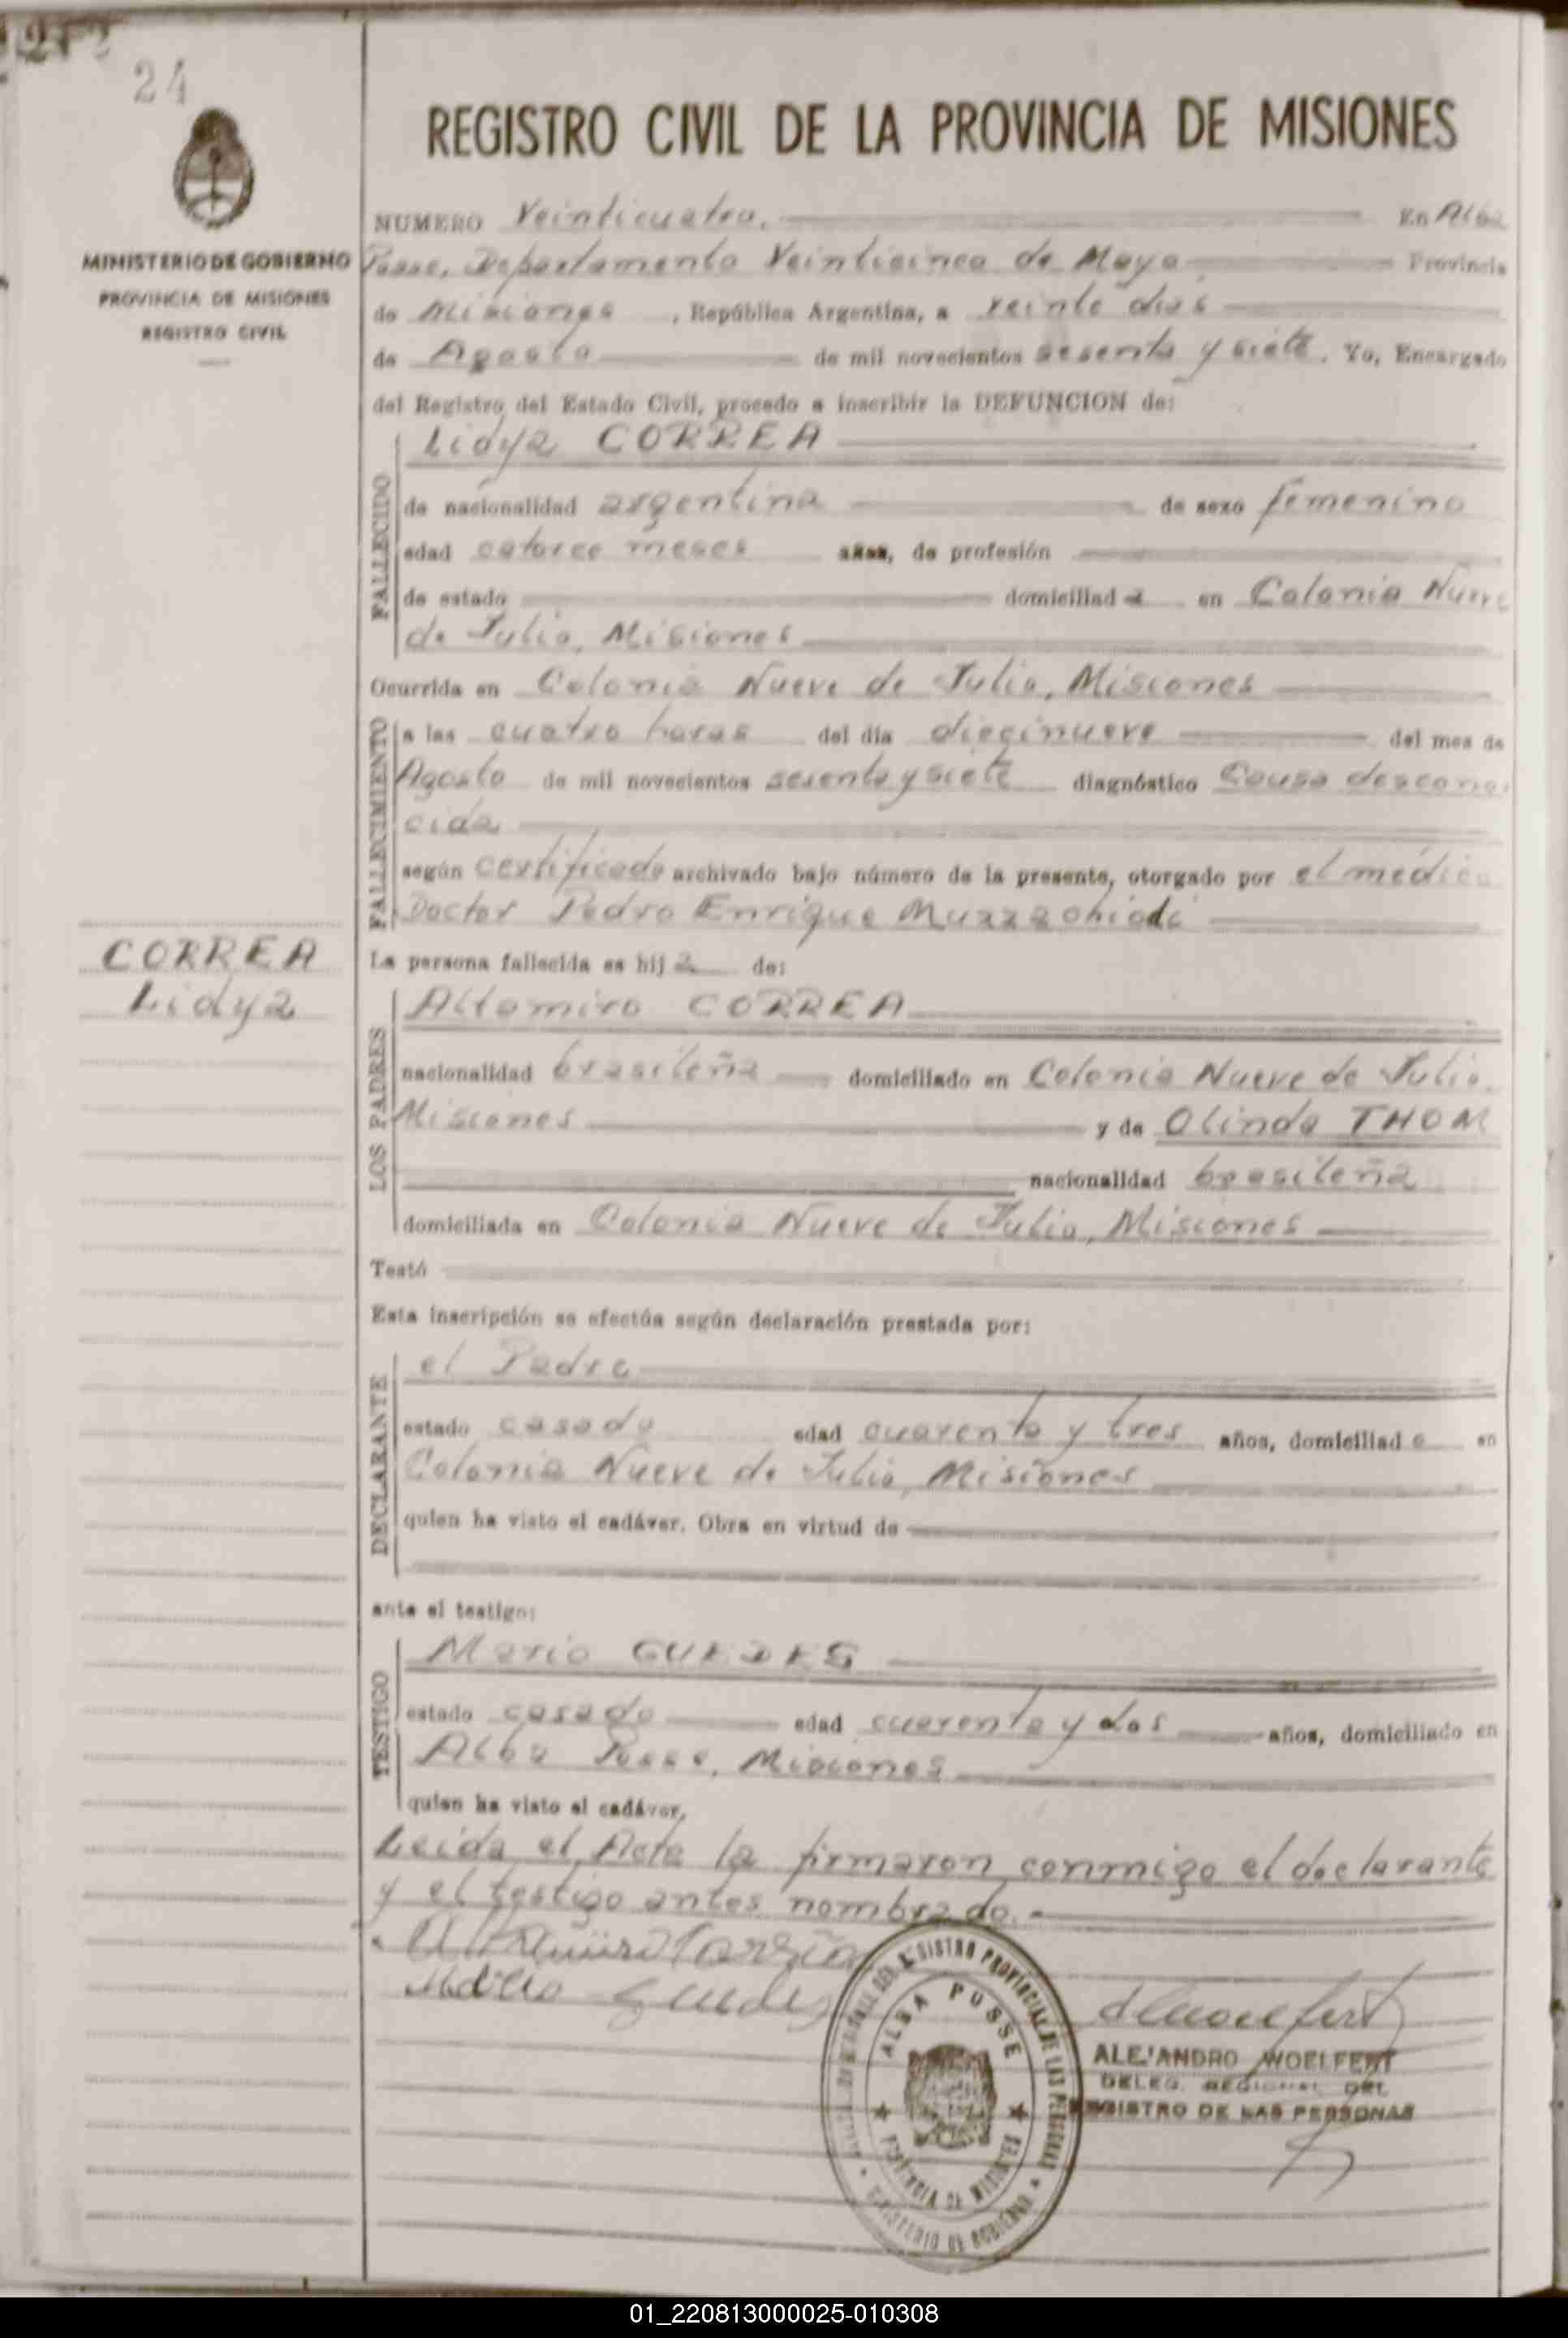 24
REGISTRO CIVIL DE LA PROVINCIA DE MISIONES
MINISTERIO DE GOBIERNO
PROVINCIA DE MISIONES
REGISTRO CIVIL
NUMERO Veinticuatro. En Alba
Posse, Departamento Veinticinco de Mayo Provincia
de Misiones, República Argentina, a veinte dias
de Agosto de mil novecientos sesenta y siete. Yo, Encargado
del Registro del Estado Civil, procedo a inscribir la DEFUNCION de:
FALLECIDO
Lidya CORREA
de nacionalidad argentina de sexo femenino
edad catorce meses años, de profesión
de estado domiciliad a en Colonia Nueve
de Julio, Misiones
Ocurrida en Colonia Nueve de Julio, Misiones
FALLECIMIENTO
a las cuatro horas del día diecinueve del mes de
Agosto de mil novecientos sesenta y siete diagnóstico Causa descono
cida
según certificado archivado bajo número de la presente, otorgado por el médico
Doctor Pedro Enrique
CORREA
Lidya
La persona fallecida es hij a de:
LOS PADRES
Altamiro CORREA
nacionalidad brasileña domiciliado en Colonia Nueve de Julio.
Misiones y de Olinda THOM
nacionalidad brasileña
domiciliada en Colonia Nueve de Julio, Misiones
Testó
Esta inscripción se efectúa según declaración prestada por:
DECLARANTE
el Padre
estado casado edad cuarenta y tres años, domiciliad o en
Colonia Nueve de Julio, Misiones
quien ha visto el cadáver. Obra en virtud de
ante el testigo:
TESTIGO
Mario GUEDES
estado casado edad cuarenta y dos años, domiciliado en
Alba Posse, Misiones
quien ha visto el cadáver.
Leida el Acta la firmaron conmigo el declarante
y el testigo antes nombrado.-
ALBA POSSE
PROVINCIA DE MISIONES
MINISTERIO DE GOBIERNO
ALEJANDRO WOELFERT
DELEG. REGIONAL DEL
REGISTRO DE LAS PERSONAS
01_220813000025-010308